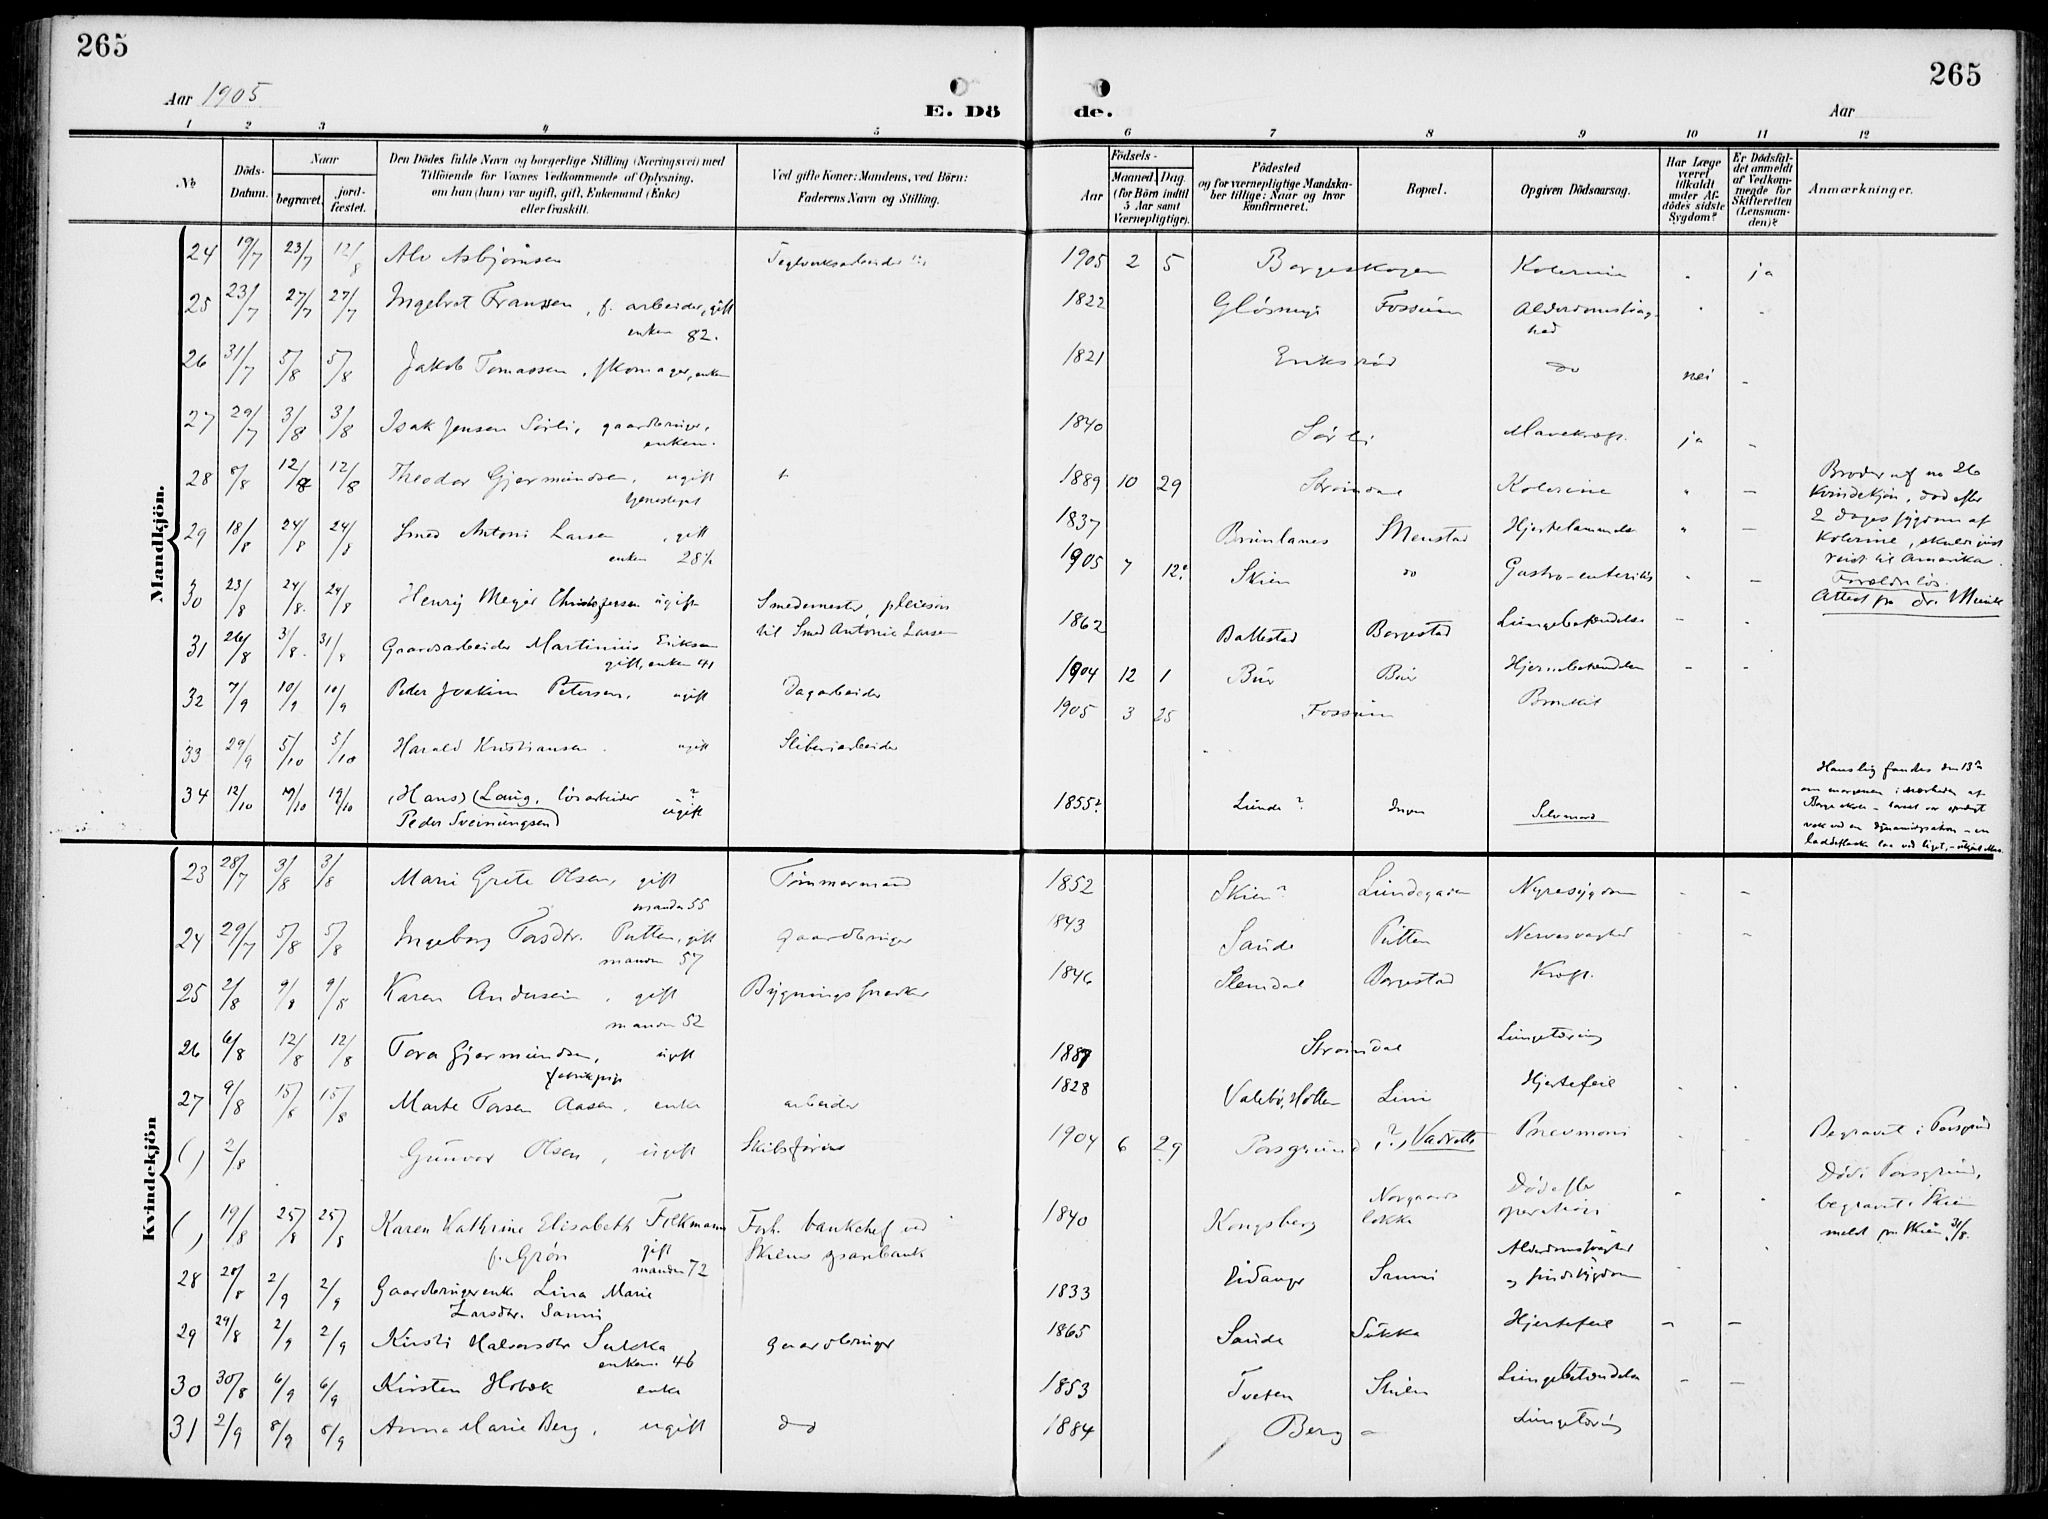 265
265
Aar 1905
E. Dö
de.
Aar
1 2 3 4 5 6 7 8 9 10 11 12
№
Döds-
Datum.
Naar
begravet.
jord-
fæstet.
Den Dödes fulde Navn og borgerlige Stilling (Næringsvei) med
Tilföiende for Voxnes Vedkommende af Oplysning,
om han (hun) var ugift, gift, Enkemand (Enke)
eller fraskilt.
Ved gifte Koner: Mandens, ved Börn:
Faderens Navn og Stilling.
Födsels-
Aar
Maaned. Dag.
(for Börn indtil
5 Aar samt
Værnepligtige).
Födested
og for værnepligtige Mandska-
ber tillige: Naar og hvor
konfirmeret.
Bopæl.
Opgiven Dödsaarsag.
Har Læge
været
tilkaldt
under Af-
dödes sidste
Sygdom?
Er Dödsfal-
det anmeldt
af Vedkom-
mende for
Skifteretten
(Lensman-
den)?
Anmærkninger.
Mandkjön.
24 19/7 23/7 12/8 Alv Asbjørnsen Teglverksarbeider 1905 2 5 Borgeskogen Kolerine " ja
25 23/7 27/7 27/7 Ingebret Franssen, f. arbeider, gift 1822 Fossum Alderdomssvag-
enken 82. hed
26 31/7 5/8 5/8 Jakob Tomassen, skomager, enkem 1821 Eriksrød do nei -
27 29/7 3/8 3/8 Isak Jensen Sørli, gaardbruger, 1840 Sørli Mavekræft. ja -
enkem.
28 8/8 12/8 12/8 Theodor Gjermundsen, ugift + 1889 10 29 Strømdal Kolerine " -
tjenestegut
Broder af no 26
Kvindekjøn, død efter
2 dages sygdom af
Kolerine, skulde just
reist til Amerika.
Forældreløs.
Attest fra dr. Munk
29 18/8 24/8 24/8 Smed Antoni Larsen, gift 1837 Brunlanes Menstad Hjertelammelse " -
enken 28 1/2
30 23/8 24/8. 24/8 Henry Meyer Christofersen ugift Smedemester, pleiesøn 1905 7 12? Skien do Gastro-enteritis " -
til Smed Antonie Larsen
31 26/8 31/8. 31/8 Gaardsarbeider Martinius Eriksen 1862 Ballestad Borgestad Lungebetændelse - -
gift, enken 41
32 7/9 10/9 10/9 Peder Joakim Petersen, ugift Dagarbeider 1904 12 1 Bur Bur - -
33 29/9 5/10 5/10 Harald Kristiansen. ugift Sliberiarbeider 1905 3 25 Fossum Bronkit
34 12/10 19/10 19/10 (Hans) (Laug, løsarbeider ? 1855? Lunde? Selvmord
Peder Sveinungsen) ugift
Hans lig fandes den 13de
om morgenen i nærheden af
Borge skole
Kvindekjön
23 28/7 3/8 3/8 Marie Grete Olsen, gift Tømmermand 1852 Skien? Lundegaden Nyresygdom - -
manden 55
24 29/7 5/8 5/8 Ingeborg Torsdtr. Putten, gift gaardbruger 1843 Saude Putten Nervesvaghed - -
manden 57
25 2/8 9/8 9/8 Karen Andersen, gift Bygningssnedker 1846 Slemdal Borgestad Kræft.
manden 52
26 6/8 12/8 12/8 Tora Gjermundsen, ugift 1887 Strømdal Lungetæring
fabrikpige
27 9/8 15/8 15/8 Marte Torsen Aasen, enke arbeider 1828 Valebø, Holla Hjertefeil
( ) 2/8 Gunvor Olsen, ugift Skibsfører 1904 6 29 Porsgrund (?), Vadrette Pnevmoni Begravet i Porsgrund
( ) 19/8 25/8 25/8 Karen Kathrine Elisabeth Folkmann Forh. bankchef ved 1840 Kongsberg Norgaards Død efter
f. Grøn gift Skiens sparebank løkka operation
manden 72
Død i Porsgrund,
begravet i Skien
meldt fra Skien 31/8.
28 28/8 2/9 2/9 Gaardbrugerenke Lina Marie 1833 Eidanger Sanni Alderdomssvaghed
Larsdtr. Sanni og sindssygdom
29 29/8 2/9 2/9 Kirsti Halvorsdtr Sukka gaardbruger 1865 Saude Sukka Hjertefeil - -
enkem. 46
30 30/8 6/9 6/9 Kirsten Hobæk enke 1853 Tveten Skien Lungebetændelse - -
31 2/9 8/9 8/9 Anna Marie Berg, ugift 1884 Berg Lungetæring